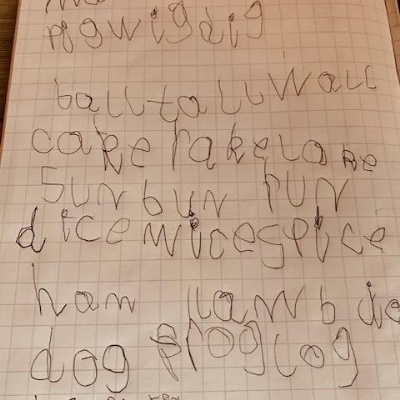 pig wig dig
ball tall wall
cake rake lake
sun bun run
dice mice spice
ham
dog frog log